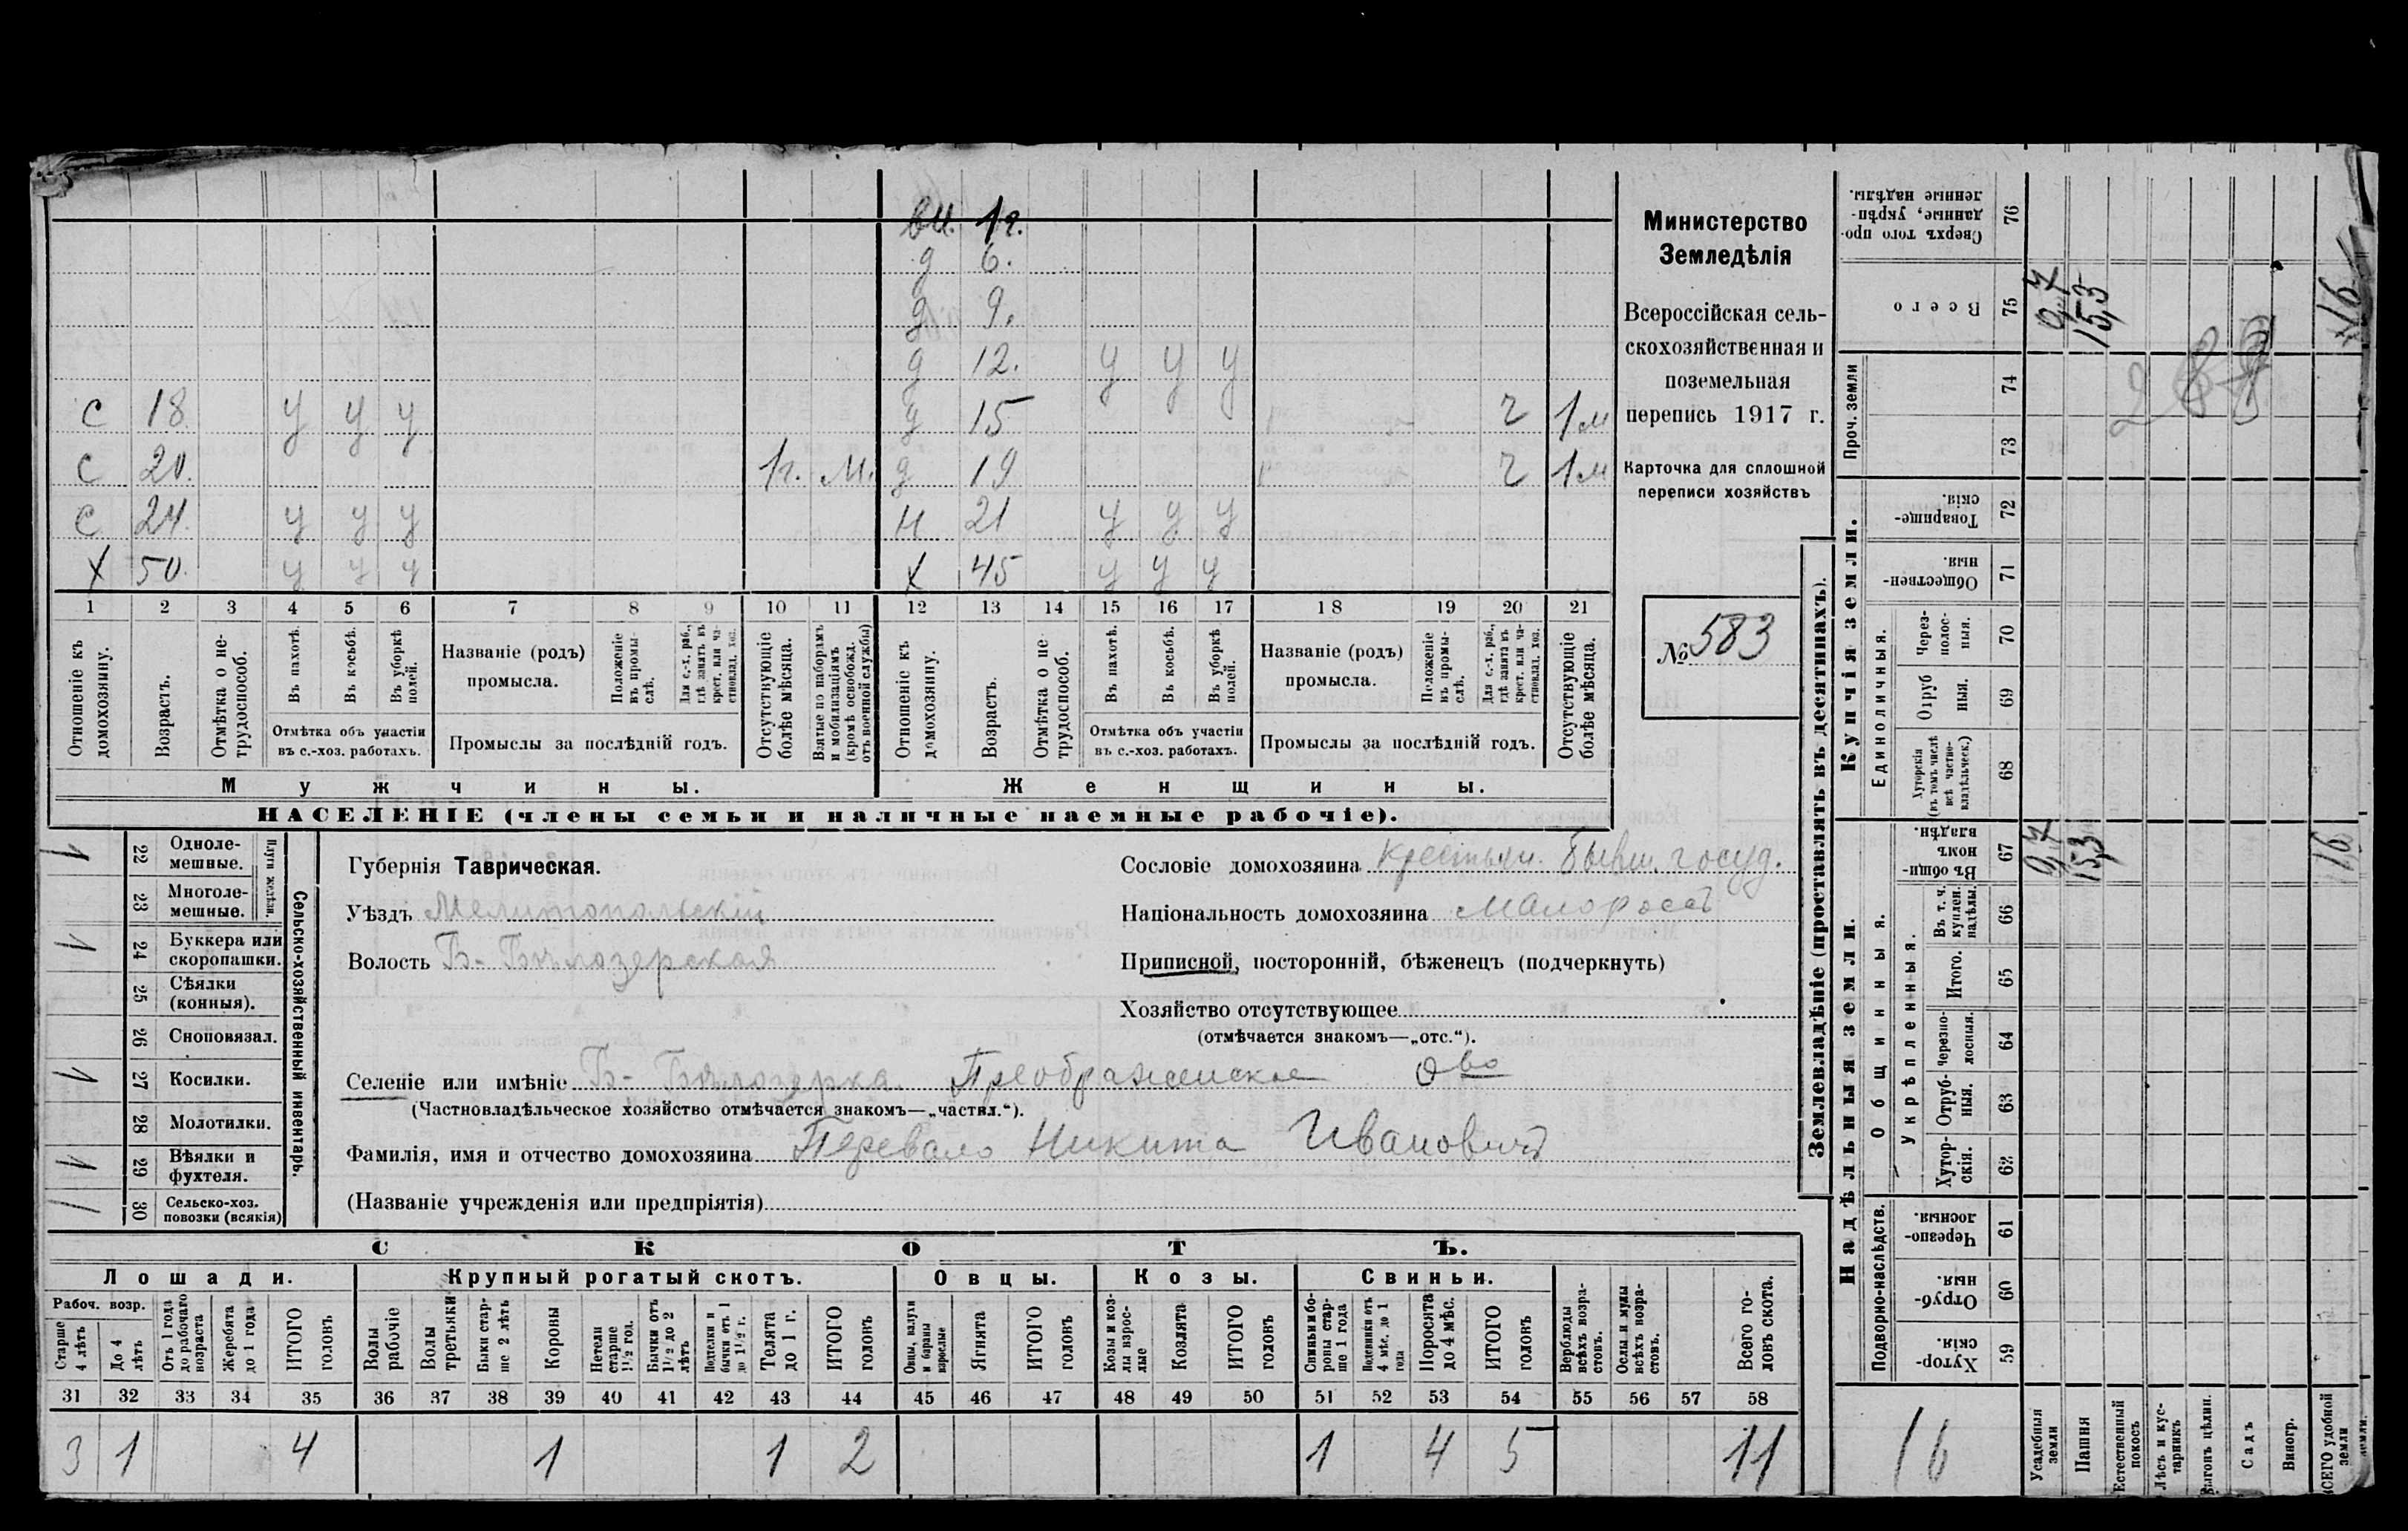 вн. 1г.
д 6.
д 9.
д 12. у у у
с 18 у у у д 15 г 1м
с 20. 1г. м. д 19 г 1м
с 24 у у у н 21 у у у
х 50. у у у х 45 у у у
1 2 3 4 5 6 7 8 9 10 11 12 13 14 15 16 17 18 19 20 21
Отношеніе къ домохозяину.
Возрастъ.
Отмѣтка о не-трудоспособ.
Въ пахотѣ.
Въ косьбѣ.
Въ уборкѣ полей.
Отмѣтка объ участіи въ с.-хоз. работахъ.
Названіе (родъ) промысла.
Положеніе въ промы-слѣ.
Для с.-х. раб., гдѣ занятъ въ крест. или ча-стновлад. хоз.
Промыслы за послѣдній годъ.
Отсутствующіе болѣе мѣсяца.
Взятые по наборамъ и мобилизаціямъ (кромѣ освобожд. отъ военной службы)
Отношеніе къ домохозяину.
Возрастъ.
Отмѣтка о не-трудоспособ.
Въ пахотѣ.
Въ косьбѣ.
Въ уборкѣ полей.
Отмѣтка объ участіи въ с.-хоз. работахъ.
Названіе (родъ) промысла.
Положеніе въ промы-слѣ.
Для с.-х. раб., гдѣ занята въ крест. или ча-стновлад. хоз.
Промыслы за послѣдній годъ.
Отсутствующіе болѣе мѣсяца.
Мужчины. Женщины.
НАСЕЛЕНІЕ (члены семьи и наличные наемные рабочіе).
Министерство
Земледѣлія
Всероссійская сель-
скохозяйственная и
поземельная
перепись 1917 г.
Карточка для сплошной
переписи хозяйствъ
№ 583
Сельско-хозяйственный инвентарь.
Плуги желѣзн.
1 22 Одноле-мешные.
23 Многоле-мешные.
1 24 Буккера или скоропашки.
25 Сѣялки (конныя).
26 Сноповязал.
1 27 Косилки.
28 Молотилки.
1 29 Вѣялки и фухтеля.
1 30 Сельско-хоз. повозки (всякія)
Губернія Таврическая.
Уѣздъ Мелитопольскій
Волость Б- Бѣлозерская
Сословіе домохозяина крестьян. бывш. госуд.
Національность домохозяина малороссъ
Приписной, посторонній, бѣженецъ (подчеркнуть)
Хозяйство отсутствующее
(отмѣчается знакомъ—„отс.“).
Селеніе или имѣніе Б- Бѣлозерка. Преображенское о-во
(Частновладѣльческое хозяйство отмѣчается знакомъ—„частвл.“).
Фамилія, имя и отчество домохозяина Перевало Никита Ивановичъ
(Названіе учрежденія или предпріятія)
СКОТЪ.
Лошади. Крупный рогатый скотъ. Овцы. Козы. Свиньи.
Рабоч. возр.
Старше 4 лѣтъ
До 4 лѣтъ
Отъ 1 года до рабочаго возраста
Жеребята до 1 года
ИТОГО головъ
Волы рабочіе
Волы третьяки
Быки стар-ше 2 лѣтъ
Коровы
Нетели старше 1½ год.
Бычки отъ 1½ до 2 лѣтъ
Подтелки и бычки отъ 1 до 1½ г.
Телята до 1 г.
ИТОГО головъ
Овцы, валухи и бараны взрослые
Ягнята
ИТОГО головъ
Козы и коз-лы взрос-лые
Козлята
ИТОГО головъ
Свиньи и бо-ровы стар-ше 1 года
Подсвинки отъ 4 мѣс. до 1 года
Поросята до 4 мѣс.
ИТОГО головъ
Верблюды всѣхъ возра-стовъ.
Ослы и мулы всѣхъ возра-стовъ.
Всего го-ловъ скота.
31 32 33 34 35 36 37 38 39 40 41 42 43 44 45 46 47 48 49 50 51 52 53 54 55 56 57 58
3 1 4 1 1 2 1 4 5 11
Землевладѣніе (проставлять въ десятинахъ).
Сверхъ того про-данные, укрѣп-ленные надѣлы. 76
Всего 75 0,7 15,3 16
Проч. земли 74 73
Купчія земли.
Товарище-скія. 72
Обществен-ныя. 71
Единоличныя.
Через-полос-ныя. 70
Отруб ныя. 69
Хуторскія (въ томъ числѣ всѣ частно-владѣльческ.) 68
Надѣльныя земли.
Общинныя.
Въ общи-номъ владѣн. 67 0,7 15,3 16
Укрѣпленныя.
Въ т. ч. куплен. надѣлы. 66
Итого. 65
Черезпо-лосныя. 64
Отруб-ныя. 63
Хутор-скія. 62
Подворно-наслѣдств.
Черезпо-лосныя. 61
Отруб-ныя. 60
Хутор-скія. 59
16
Усадебныя земли
Пашня
Естественный покосъ
Лѣсъ и кус-тарникъ
Выгонъ цѣлин.
Садъ
Виногр.
ВСЕГО удобной земли